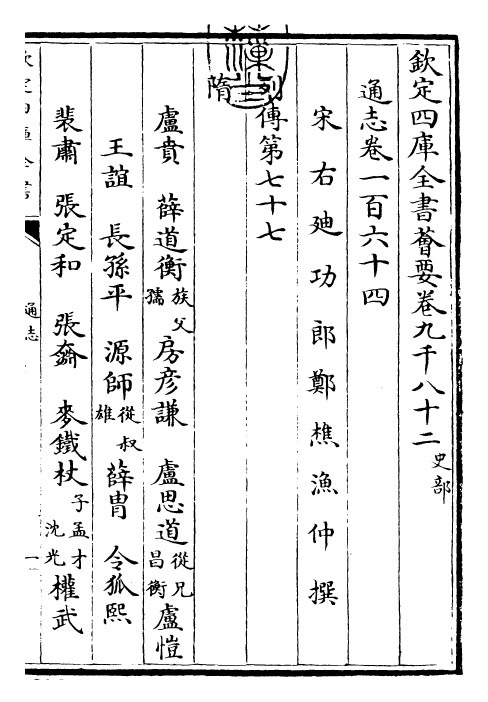 欽定四庫全書薈要卷九千八十二史部
通志卷一百六十四
宋右迪功郎鄭樵漁仲撰
列傳第七十七
隋
盧賁 薛道衡族父孺 房彦謙 盧思道從兄昌衡 盧愷
王誼 長孫平 源師從叔雄 薛胄 令狐熙
裴肅 張定和 張奫 麥鐵杖子孟才 沈光 權武
通志
一